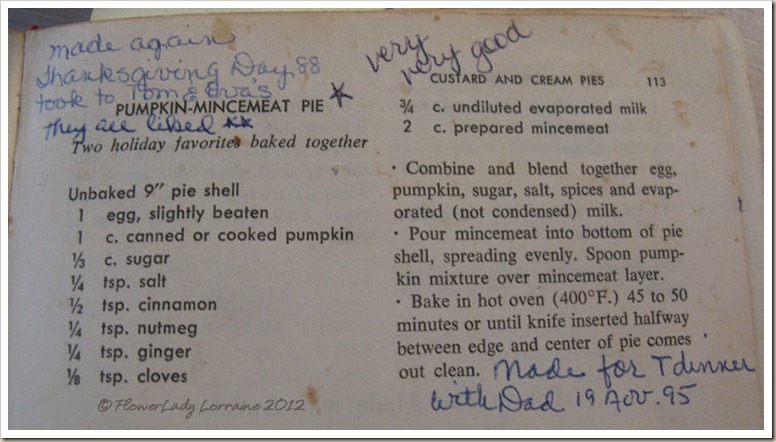 made again
Thanksgiving Day 88
took to Tom & Eva's
they all liked **
very
very good
PUMPKIN-MINCEMEAT PIE *
Two holiday favorites baked together
Unbaked 9" pie shell
1 egg, slightly beaten
1 c. canned or cooked pumpkin
⅓ c. sugar
¼ tsp. salt
½ tsp. cinnamon
¼ tsp. nutmeg
¼ tsp. ginger
⅛ tsp. cloves
CUSTARD AND CREAM PIES 113
¾ c. undiluted evaporated milk
2 c. prepared mincemeat
· Combine and blend together egg,
pumpkin, sugar, salt, spices and evap-
orated (not condensed) milk.
· Pour mincemeat into bottom of pie
shell, spreading evenly. Spoon pump-
kin mixture over mincemeat layer.
· Bake in hot oven (400°F.) 45 to 50
minutes or until knife inserted halfway
between edge and center of pie comes
out clean.
Made for T dinner
with Dad 19 Nov. 95
© FlowerLady Lorraine 2012